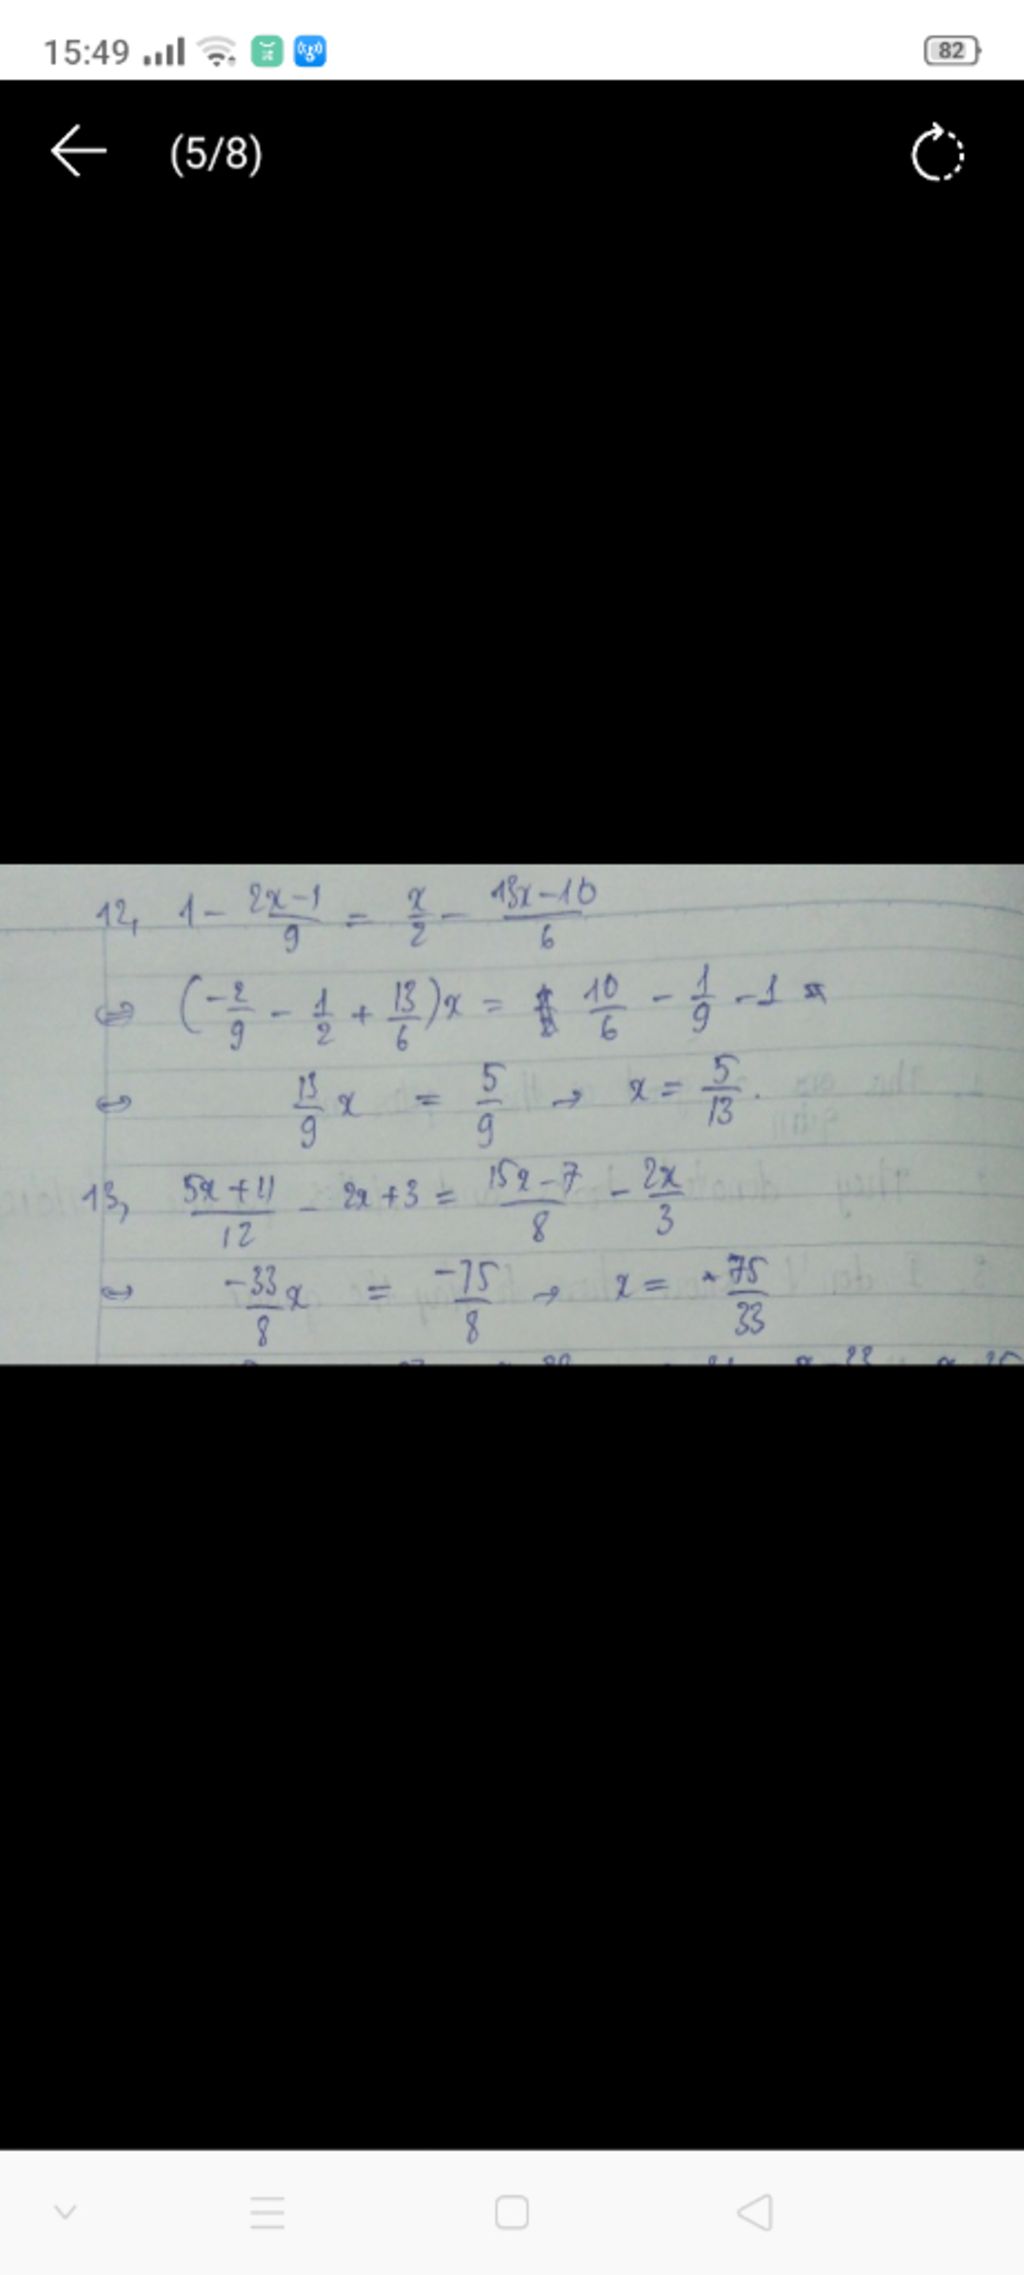 15:49 82
(5/8)
12, 1 - \frac{2x-1}{9} = \frac{x}{2} - \frac{13x-10}{6}
⇔ (-\frac{2}{9} - \frac{1}{2} + \frac{13}{6})x = \frac{10}{6} - \frac{1}{9} - 1
⇔ \frac{13}{9}x = \frac{5}{9} → x = \frac{5}{13}.
13, \frac{5x+11}{12} - 2x+3 = \frac{15x-7}{8} - \frac{2x}{3}
⇔ \frac{-33}{8}x = \frac{-75}{8} → x = \frac{75}{33}